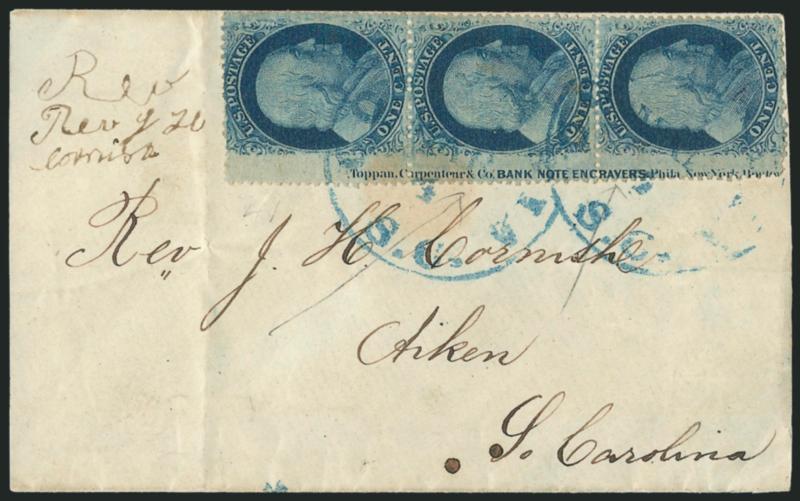 U.S. POSTAGE ONE CENT
U.S. POSTAGE ONE CENT
U.S. POSTAGE ONE CENT
Toppan, Carpenter & Co. BANK NOTE ENGRAVERS, Phila. New York, Boston
Rev
Rev J H
cornish
Rev J. H Cornish
Aiken
So. Carolina
S.C.
S.C.